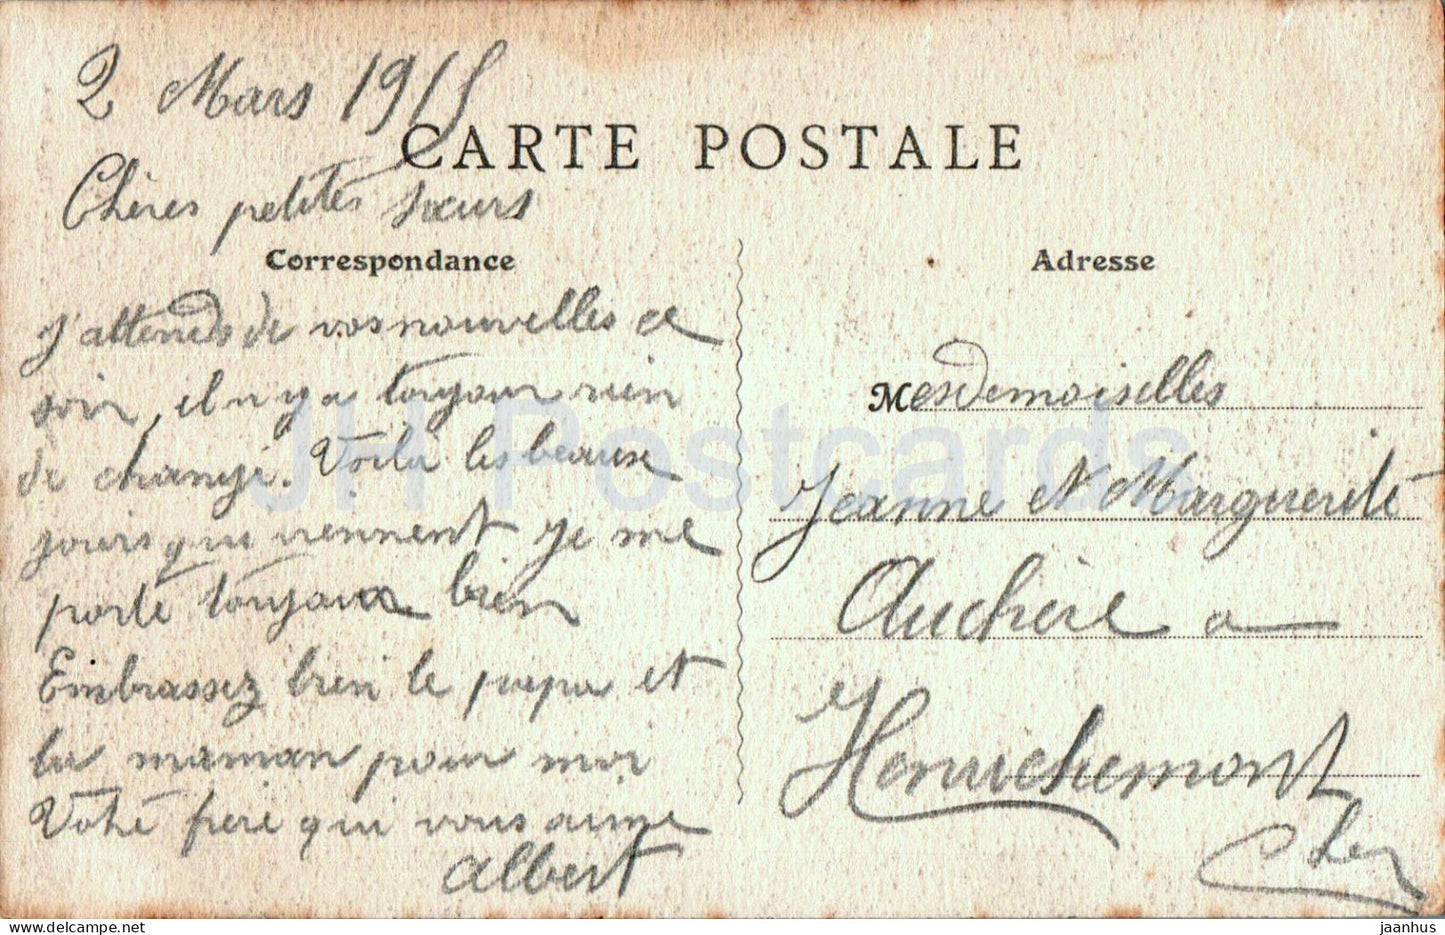 2 Mars 1915
CARTE POSTALE
Chères petites sœurs
Correspondance
J'attends de vos nouvelles ce
soir, il n'y a toujour rien
de changé. Voilà les beaux
jours qui viennent je me
porte toujours bien
Embrassez bien le papa et
la maman pour moi
Votre frère qui vous aime
Albert
Adresse
Mesdemoiselles
Jeanne et Marguerite
Auchère a
Henrichemont
Cher
JH Postcards
delcampe.net
jaanhus